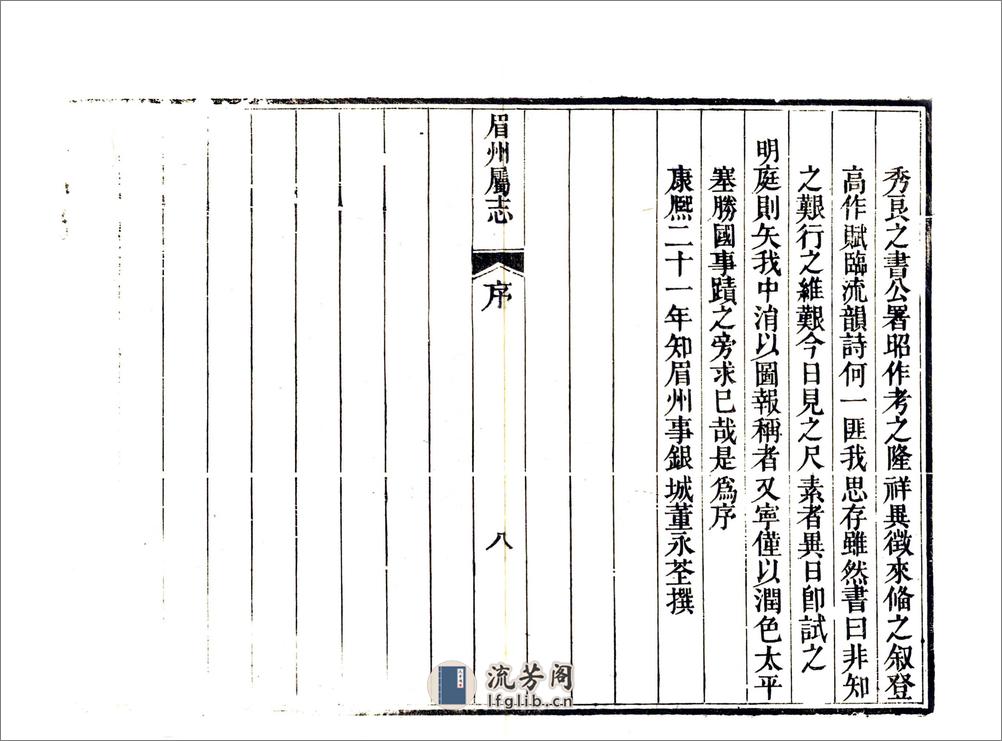 秀良之書公署昭作考之隆祥異徵來脩之叙登
高作賦臨流韻詩何一匪我思存雖然書曰非知
之艱行之維艱今日見之尺素者異日卽試之
明庭則矢我中涓以圖報稱者又寧僅以潤色太平
塞勝國事蹟之旁求已哉是爲序
康熈二十一年知眉州事銀城董永荃撰
眉州屬志
序
八
流芳阁
lfglib.cn